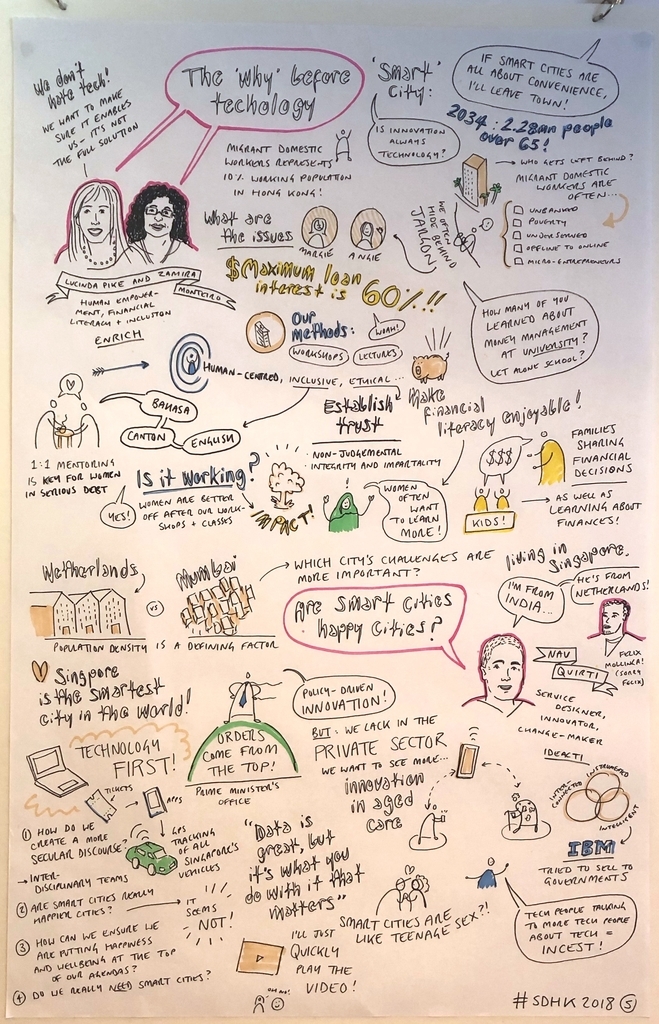 We don't
hate tech!
WE WANT TO MAKE
SURE IT ENABLES
US - IT'S NOT
THE FULL SOLUTION
The 'Why' before
techology
"Smart"
City:
IF SMART CITIES ARE
ALL ABOUT CONVENIENCE,
I'LL LEAVE TOWN!
IS INNOVATION
ALWAYS
TECHNOLOGY?
2034: 2.28mn people
over 65!
MIGRANT DOMESTIC
WORKERS REPRESENTS
10% WORKING POPULATION
IN HONG KONG!
WHO GETS LEFT BEHIND?
MIGRANT DOMESTIC
WORKERS ARE
OFTEN...
UNBANKED
POVERTY
UNDERSERVED
OFFLINE TO ONLINE
MICRO-ENTREPRENEURS
What are
the issues
MARKIE
ANGIE
WE OFTEN
HIDE BEHIND
JARGON
LUCINDA PIKE AND ZAMIRA
MONTEIRO
HUMAN EMPOWER-
MENT, FINANCIAL
LITERACY + INCLUSION
ENRICH
$ Maximum loan
interest is 60%!!
WOAH!
HOW MANY OF YOU
LEARNED ABOUT
MONEY MANAGEMENT
AT UNIVERSITY?
LET ALONE SCHOOL?
Our
Methods:
WORKSHOPS
LECTURES
HUMAN-CENTRED, INCLUSIVE, ETHICAL...
BAHASA
CANTON
ENGLISH
1:1 MENTORING
IS KEY FOR WOMEN
IN SERIOUS DEBT
Establish
trust
NON-JUDGEMENTAL
INTEGRITY AND IMPARTALITY
Make
financial
literacy enjoyable!
$$$
FAMILIES
SHARING
FINANCIAL
DECISIONS
KIDS!
AS WELL AS
LEARNING ABOUT
FINANCES!
Is it working?
YES!
WOMEN ARE BETTER
OFF AFTER OUR WORK-
SHOPS + CLASSES
IMPACT!
WOMEN
OFTEN
WANT
TO LEARN
MORE!
Netherlands
vs
Mumbai
POPULATION DENSITY IS A DEFINING FACTOR
WHICH CITY'S CHALLENGES ARE
MORE IMPORTANT?
living in
Singapore.
Are smart cities
happy cities?
I'M FROM
INDIA...
HE'S FROM
NETHERLANDS!
NAV
QUIRTI
SERVICE
DESIGNER,
INNOVATOR,
CHANGE-MAKER
IDEACTI
FELIX
(SORRY
FELIX)
Singpore
is the smartest
city in the world!
POLICY-DRIVEN
INNOVATION!
ORDERS
COME FROM
THE TOP!
PRIME MINISTER'S
OFFICE
BUT: WE LACK IN THE
PRIVATE SECTOR
WE WANT TO SEE MORE...
innovation
in aged
care
TECHNOLOGY
FIRST!
TICKETS
APPS
GPS
TRACKING
OF ALL
SINGAPORE'S
VEHICLES
INSTRUMENTED
INTER-
CONNECTED
INTELLIGENT
IBM
TRIED TO SELL TO
GOVERNMENTS
TECH PEOPLE TALKING
TO MORE TECH PEOPLE
ABOUT TECH =
INCEST!
"Data is
great, but
it's what you
do with it that
matters"
SMART CITIES ARE
LIKE TEENAGE SEX?!
① HOW DO WE
CREATE A MORE
SECULAR DISCOURSE?
INTER-
DISCIPLINARY TEAMS
② ARE SMART CITIES REALLY
HAPPIER CITIES?
IT
SEEMS
NOT!
③ HOW CAN WE ENSURE WE
ARE PUTTING HAPPINESS
AND WELLBEING AT THE TOP
OF OUR AGENDAS?
④ DO WE REALLY NEED SMART CITIES?
I'LL JUST
QUICKLY
PLAY THE
VIDEO!
OH NO!
#SDHK 2018 ⑤